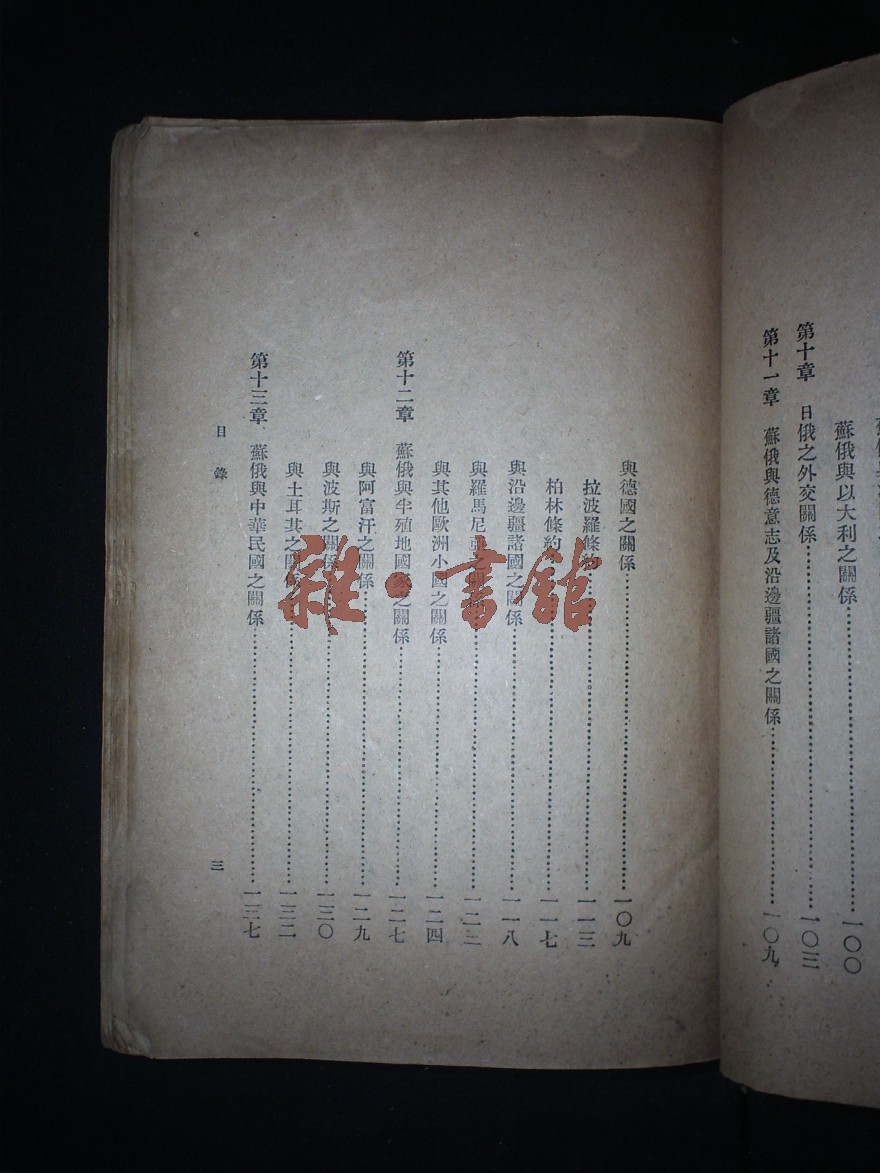 蘇俄與以大利之關係……一〇〇
第十章 日俄之外交關係……一〇三
第十一章 蘇俄與德意志及沿邊疆諸國之關係……一〇九
與德國之關係……一〇九
拉波羅條約……一一三
柏林條約……一一七
與沿邊疆諸國之關係……一一八
與羅馬尼亞之關係……一二三
與其他歐洲小國之關係……一二四
第十二章 蘇俄與半殖地國家之關係……一二七
與阿富汗之關係……一二九
與波斯之關係……一三〇
與土耳其之關係……一三二
第十三章 蘇俄與中華民國之關係……一三七
目錄
三
雜·書館